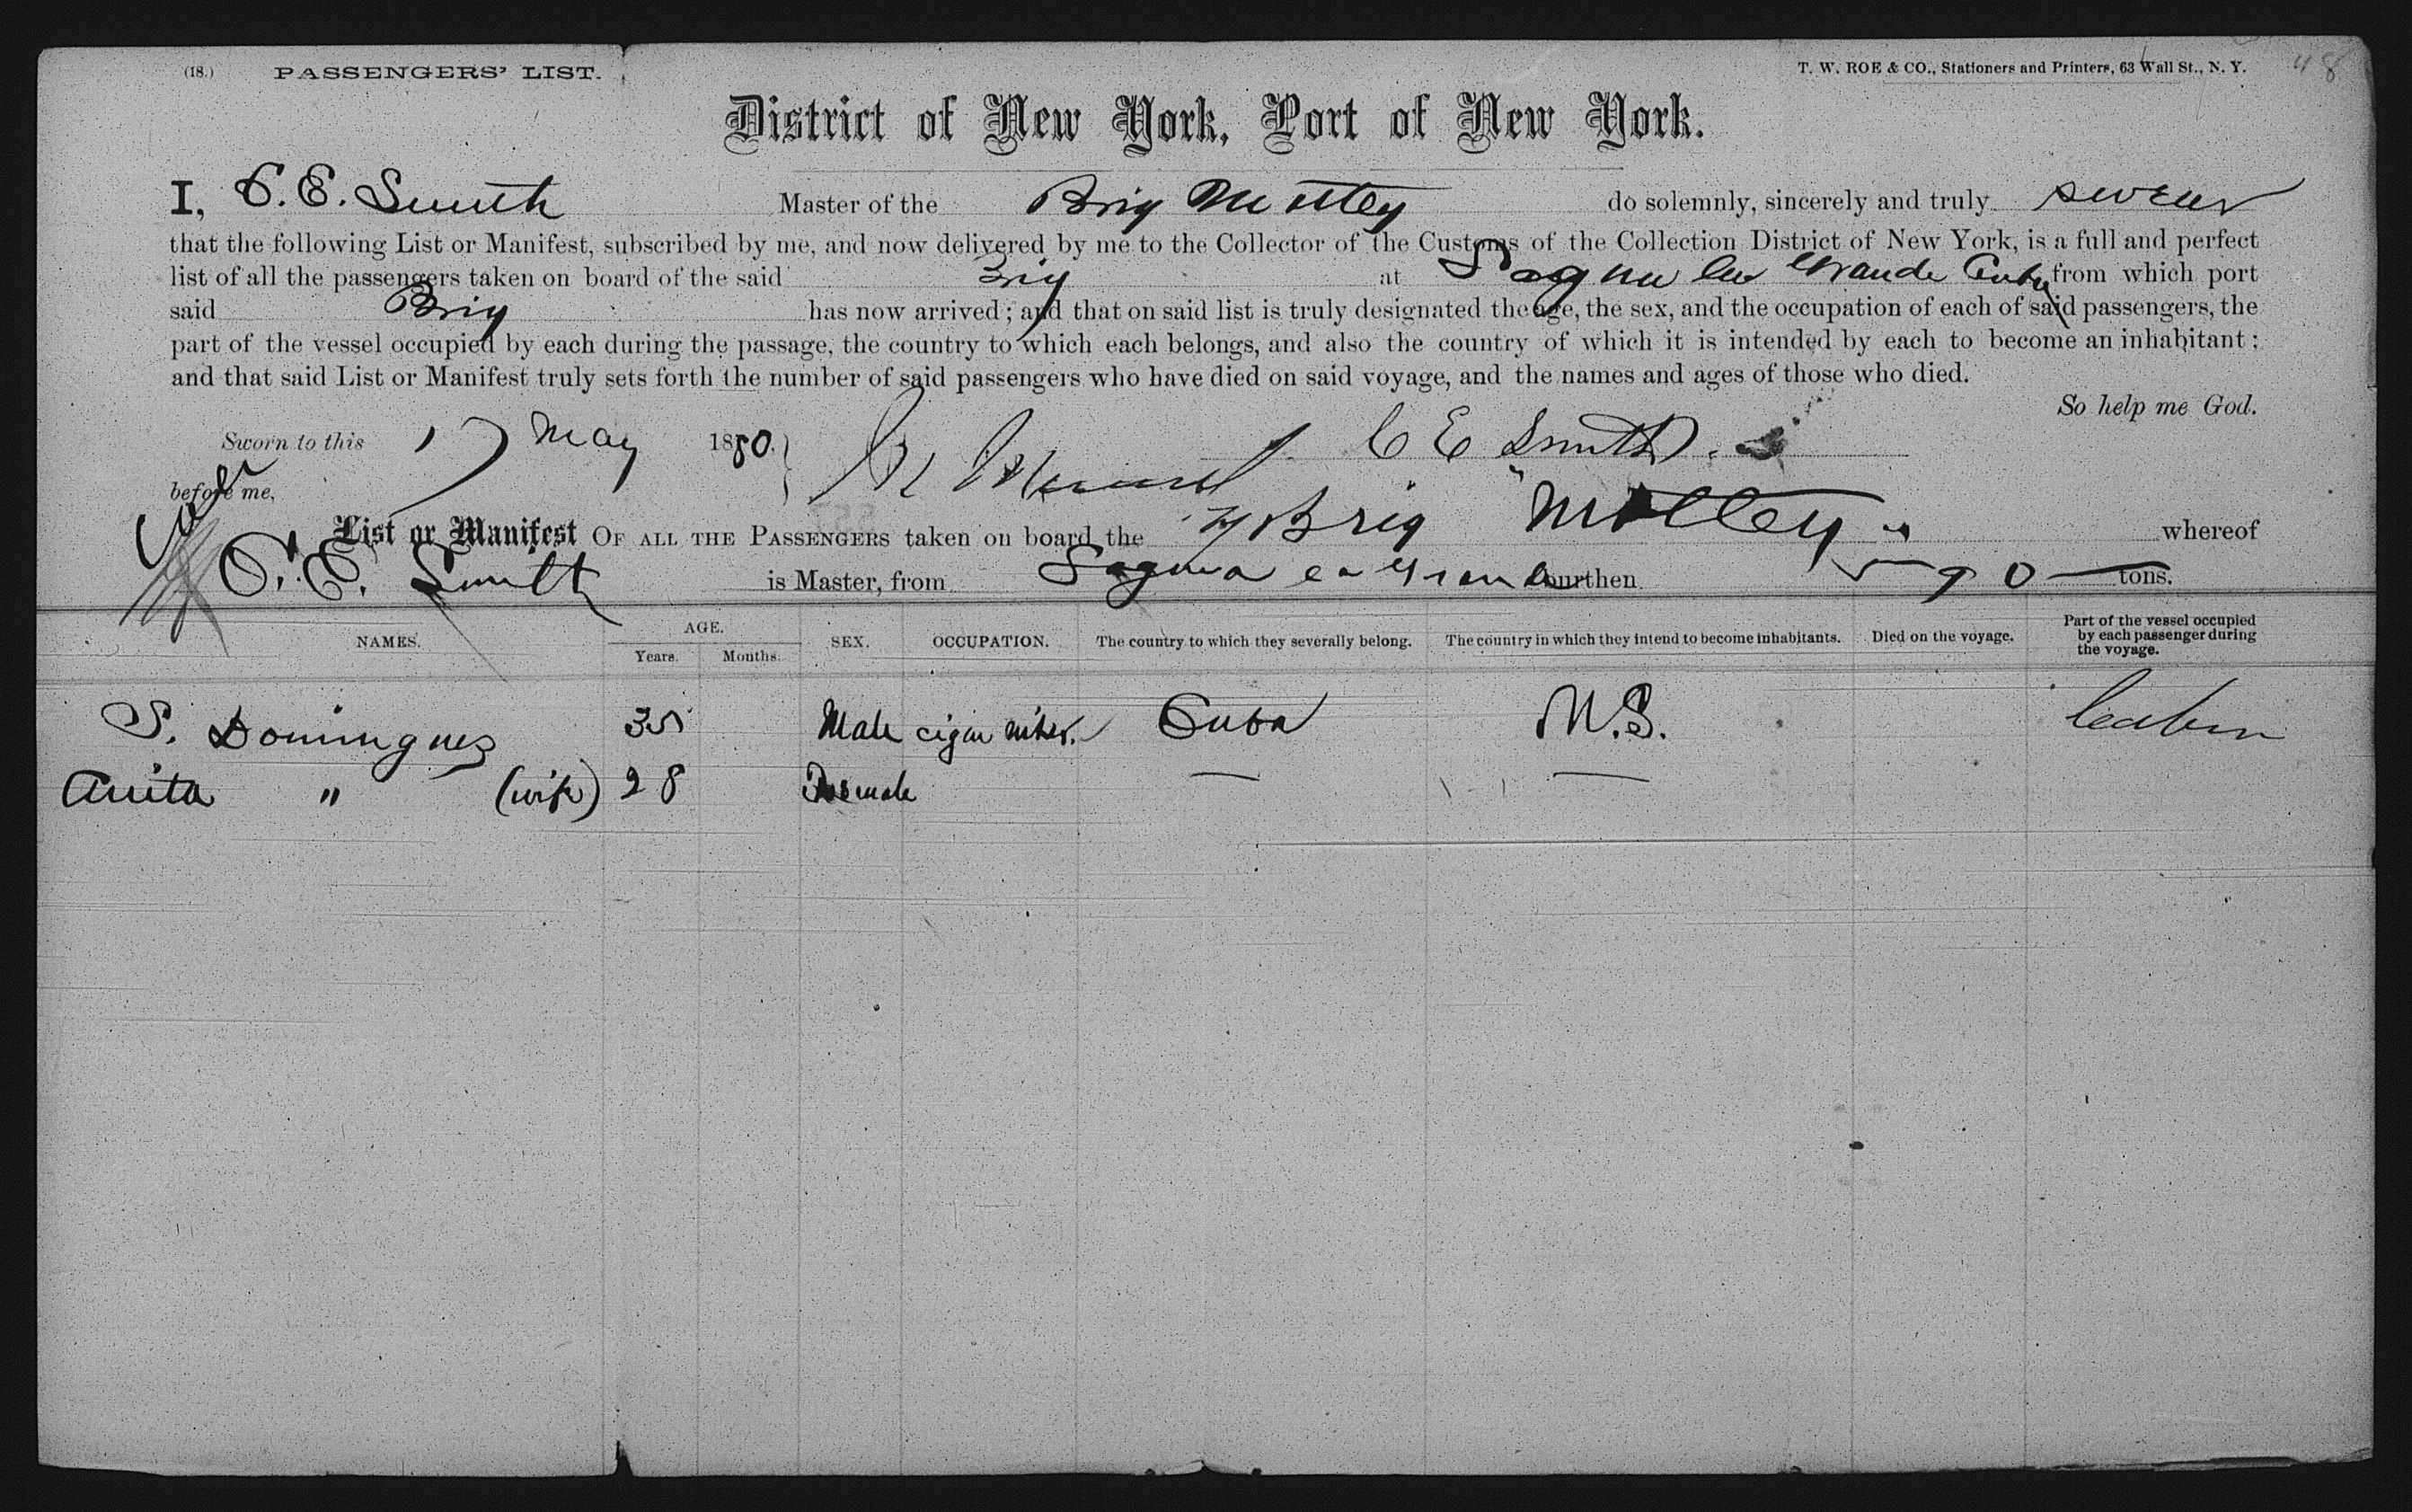 (18.) PASSENGERS' LIST.
T. W. ROE & CO., Stationers and Printers, 63 Wall St., N. Y.
48
District of New York, Port of New York.
I, C. E. Smith Master of the Brig Motley do solemnly, sincerely and truly swear
that the following List or Manifest, subscribed by me, and now delivered by me to the Collector of the Customs of the Collection District of New York, is a full and perfect
list of all the passengers taken on board of the said Brig at Sagua la Grande Cuba from which port
said Brig has now arrived; and that on said list is truly designated the age, the sex, and the occupation of each of said passengers, the
part of the vessel occupied by each during the passage, the country to which each belongs, and also the country of which it is intended by each to become an inhabitant;
and that said List or Manifest truly sets forth the number of said passengers who have died on said voyage, and the names and ages of those who died.
So help me God.
Sworn to this 17 May 1880. C E Smith
before me,
List or Manifest OF ALL THE PASSENGERS taken on board the Brig "Motley" whereof
C. E. Smith is Master, from Sagua la Grande burthen 590 tons.
NAMES. AGE. Years. Months. SEX. OCCUPATION. The country to which they severally belong. The country in which they intend to become inhabitants. Died on the voyage. Part of the vessel occupied by each passenger during the voyage.
S. Domingues 35 Male cigar mker. Cuba U.S. Cabin
Anita " (wife) 28 Female —— ——